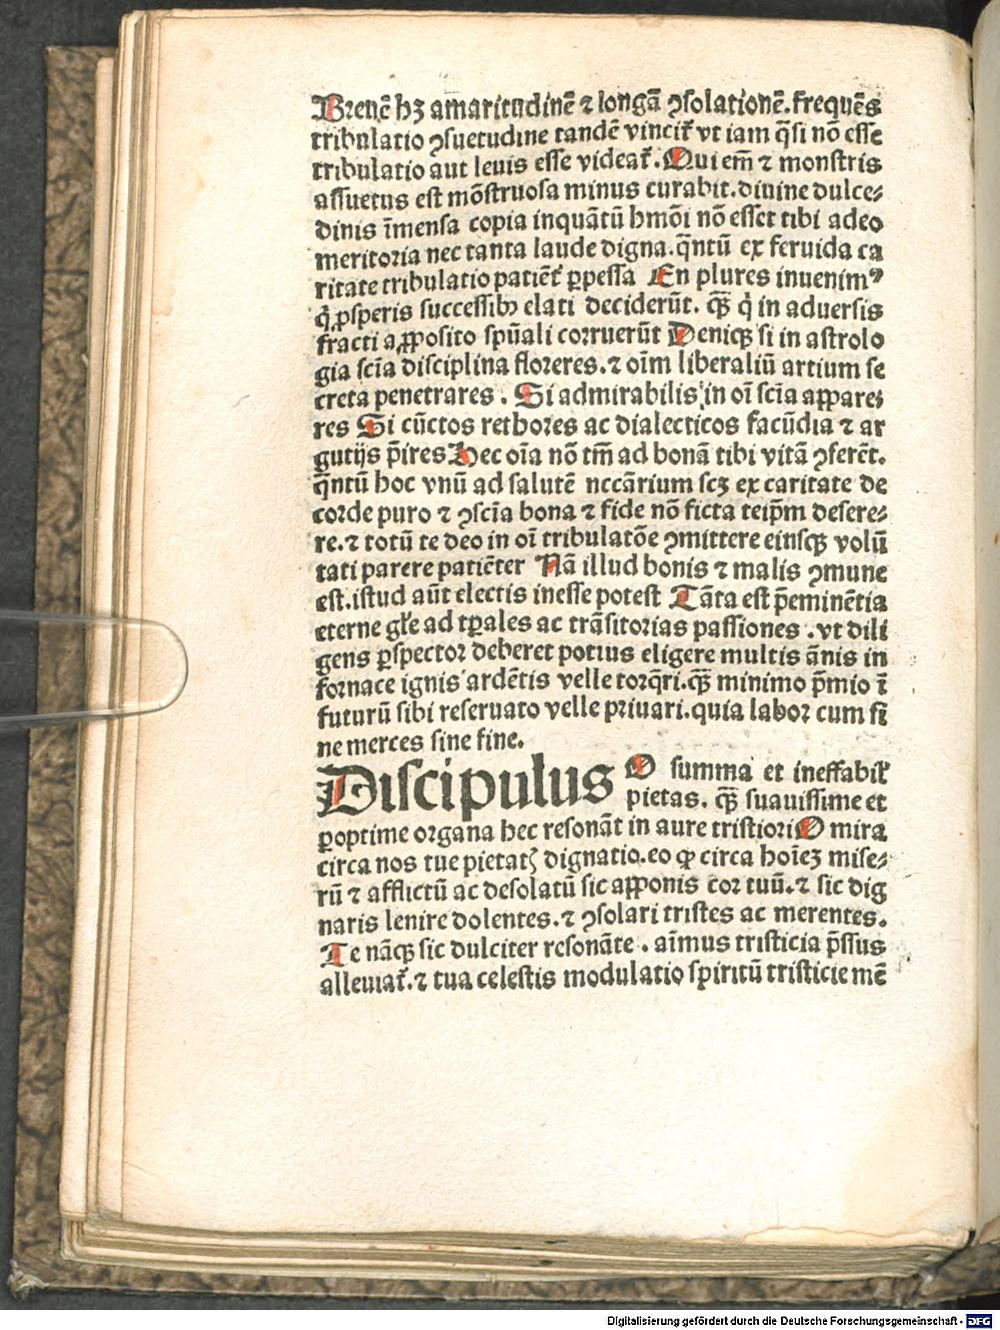 Breuē hꝫ amaritudinē ⁊ longā ꝯsolationē. frequēs
tribulatio ꝯsuetudine tandē vincit᷑ vt iam q̄si nō esse
tribulatio aut leuis esse videat᷑. Qui em̄ ⁊ monstris
assuetus est mōstruosa minus curabit. diuine dulce⸗
dinis īmensa copia inquātū hmōi nō esset tibi adeo
meritoria nec tanta laude digna. q̄ntū ex feruida ca
ritate tribulatio patiēt᷑ ꝑpessa En plures inuenimꝰ
q̇ ꝓsperis successibꝫ elati deciderūt. qꝫ̄ q̇ in aduersis
fracti a ꝓposito spūali corruerūt Deniqꝫ si in astrolo
gia scīa disciplina floreres. ⁊ oīm liberaliū artium se
creta penetrares. Si admirabilis in oī scīa appare⸗
res Si cūctos rethores ac dialecticos facūdia ⁊ ar
gutijs p̄ires Hec oīa nō tm̄ ad bonā tibi vitā ꝯferēt.
q̄ntū hoc vnū ad salutē nccārium scꝫ ex caritate de
corde puro ⁊ ꝯscīa bona ⁊ fide nō ficta teip̄m desere⸗
re. ⁊ totū te deo in oī tribulatōe ꝯmittere eiusqꝫ volū
tati parere patiēter Nā illud bonis ⁊ malis ꝯmune
est. istud aūt electis inesse potest Tāta est p̄eminētia
eterne gl̄e ad tꝑales ac trāsitorias passiones. vt dili
gens ꝑspector deberet potius eligere multis ānis in
fornace ignis ardētis velle torq̄ri. qꝫ̄ minimo p̄mio ī
futurū sibi reseruato velle priuari. quia labor cum fi
ne merces sine fine.
Discipulus O summa et ineffabil᷑
pietas. qꝫ̄ suauissime et
ꝑoptime organa hec resonāt in aure tristiori O mira
circa nos tue pietatꝭ dignatio. eo ꝙ circa hoīeꝫ mise⸗
rū ⁊ afflictū ac desolatū sic apponis cor tuū. ⁊ sic dig
naris lenire dolentes. ⁊ ꝯsolari tristes ac merentes.
Te nāqꝫ sic dulciter resonāte. aīmus tristicia p̄ssus
alleuiat᷑. ⁊ tua celestis modulatio spiritū tristicie mē
Digitalisierung gefördert durch die Deutsche Forschungsgemeinschaft - DFG